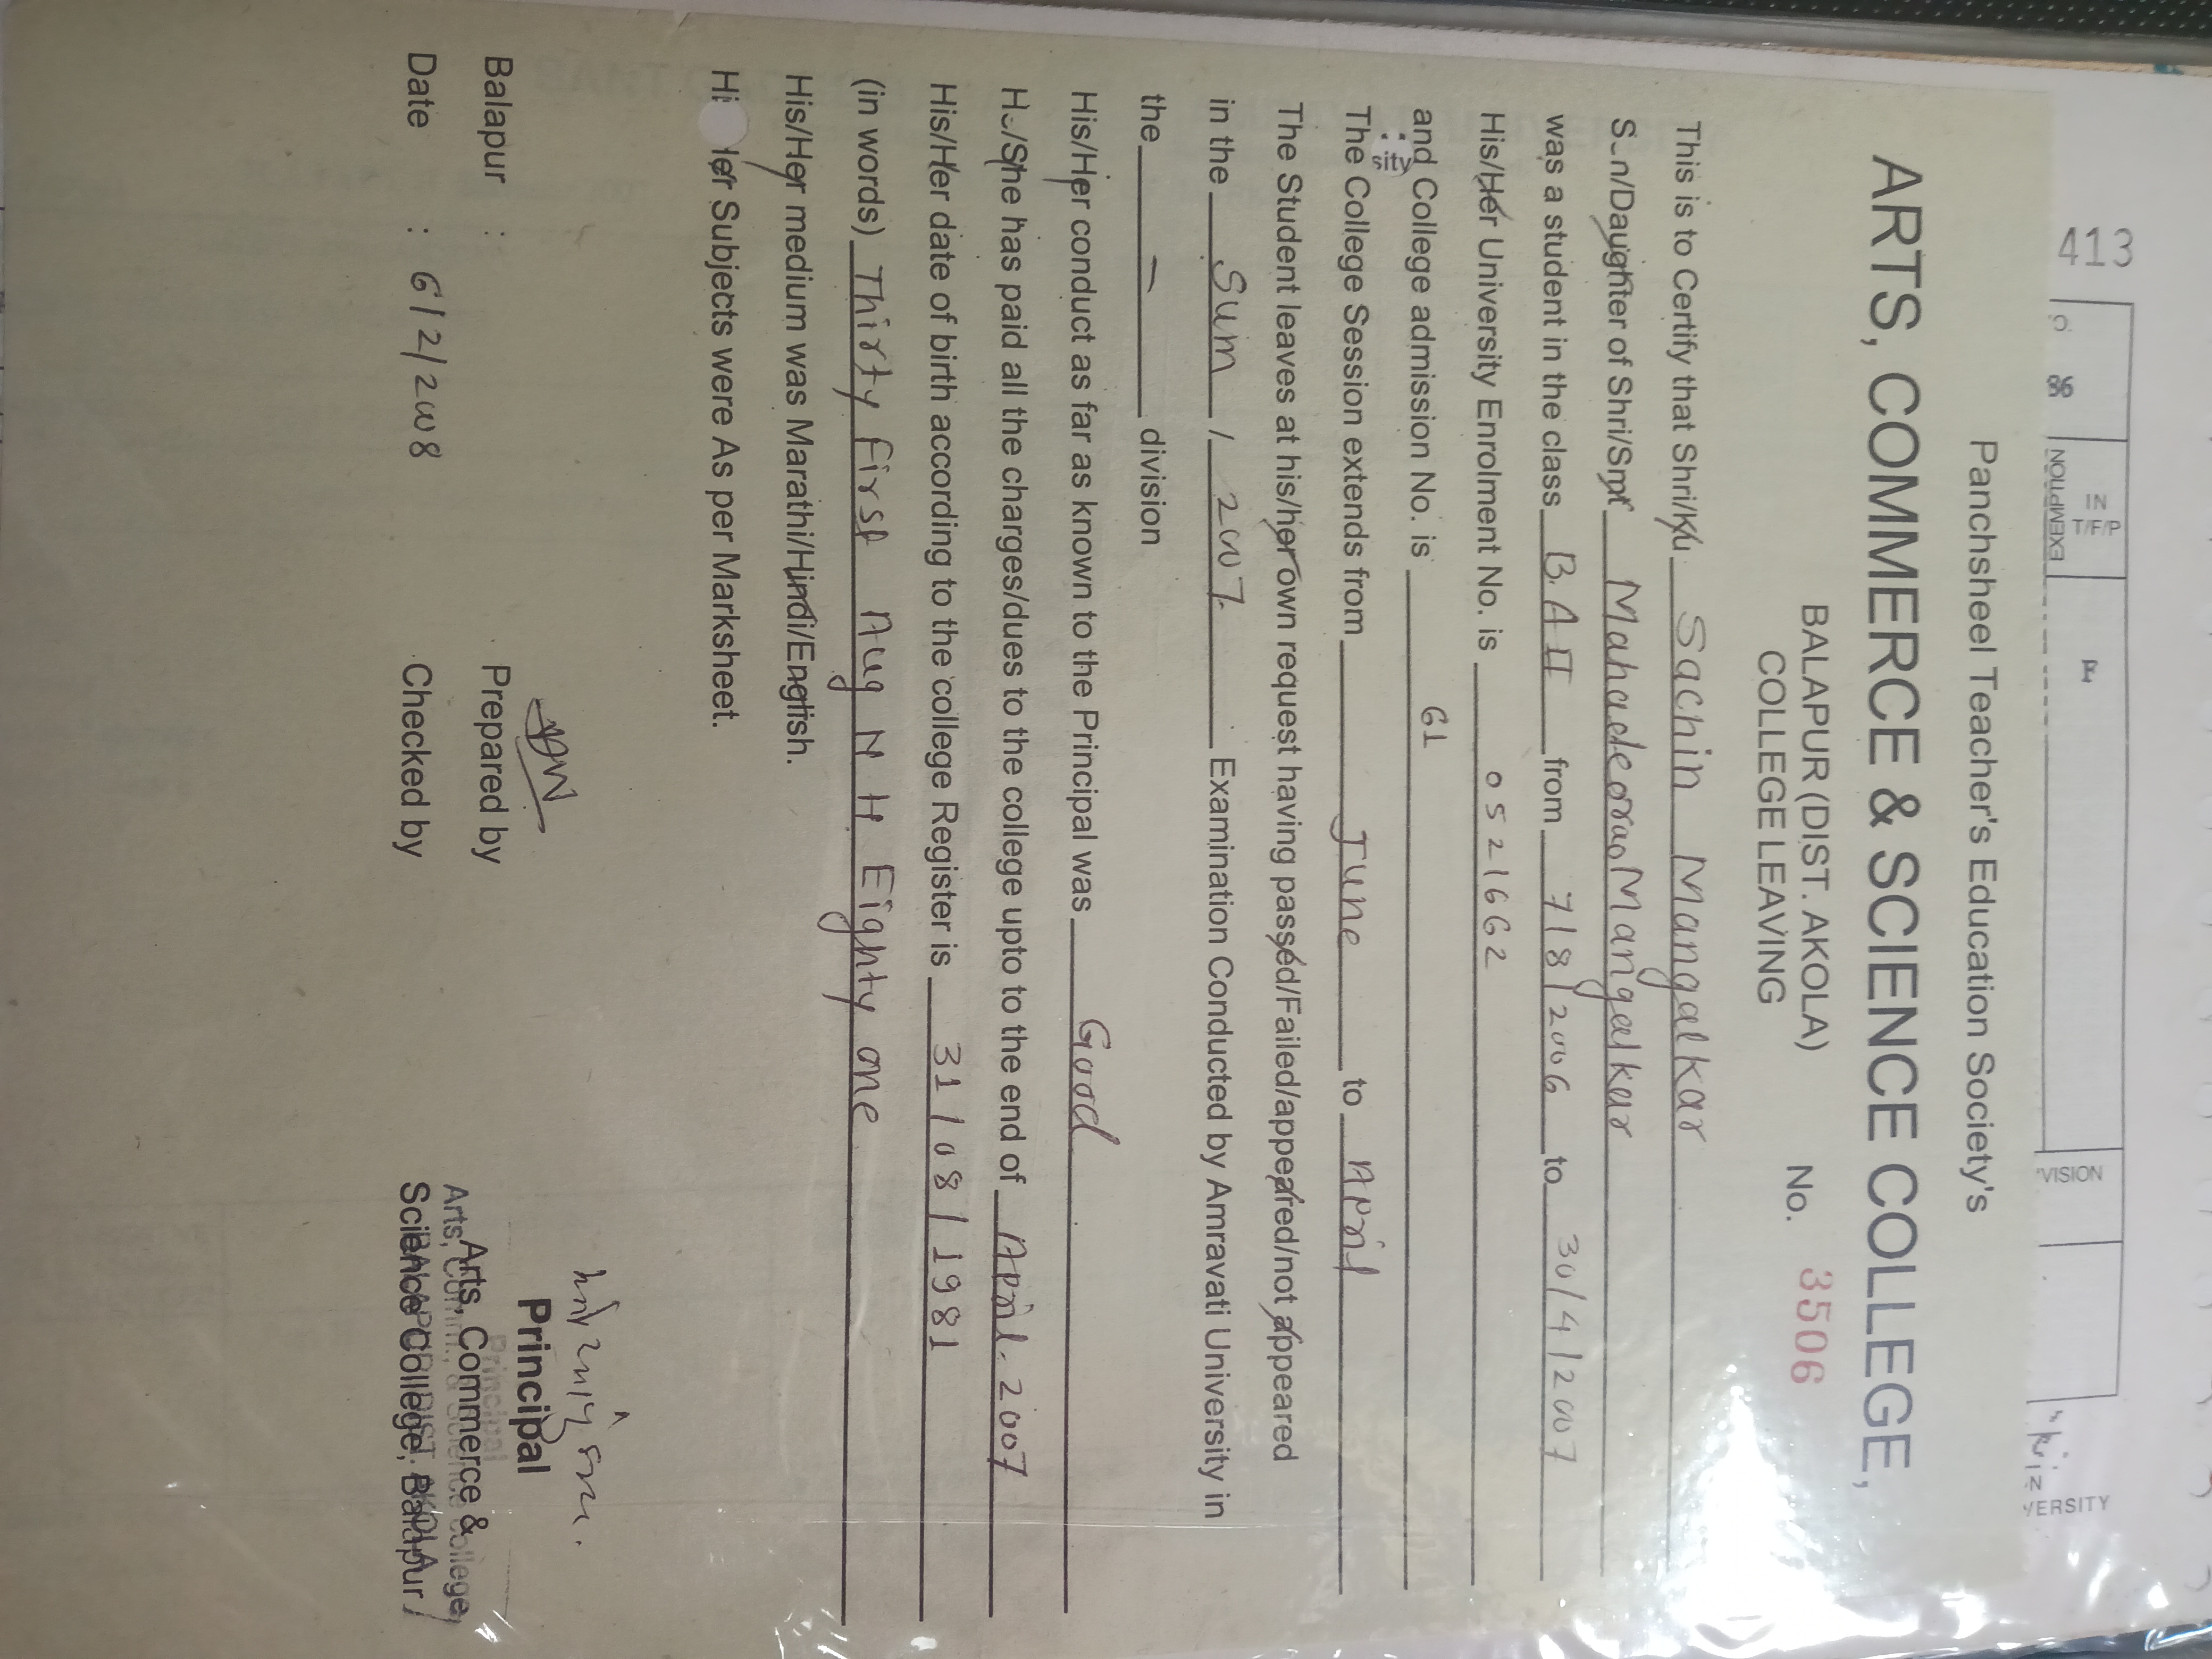 413
86
IN
T/F/P
EXEMPTION
VISION
VERSITY
Panchsheel Teacher's Education Society's
ARTS, COMMERCE & SCIENCE COLLEGE,
BALAPUR (DIST. AKOLA)
COLLEGE LEAVING No. 3506
This is to Certify that Shri/Ku Sachin Mangalkar
Son/Daughter of Shri/Smt Mahadeorao Mangalkar
was a student in the class B.A II from 7/8/2006 to 30/4/2007
His/Her University Enrolment No. is 0521662
and College admission No. is 61
The College Session extends from June to April
The Student leaves at his/her own request having passed/Failed/appeared/not appeared
in the Sum / 2007. Examination Conducted by Amravati University in
the — division
His/Her conduct as far as known to the Principal was Good
He/She has paid all the charges/dues to the college upto to the end of April. 2007
His/Her date of birth according to the college Register is 31/08/1981
(in words) Thirty first Aug N H Eighty one
His/Her medium was Marathi/Hindi/English.
Hi er Subjects were As per Marksheet.
Balapur :
Date : 6/2/2008
Prepared by
Checked by
Principal
Arts, Commerce &
Science College, Balapur